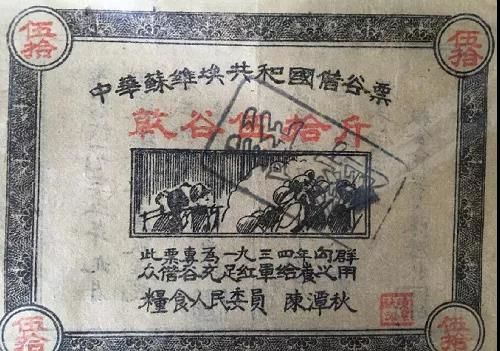 伍拾
伍拾
中華蘇維埃共和國借谷票
谷伍拾斤
此票專為一九三四年向群
众借谷充足紅軍給養之用
糧食人民委員 陳潭秋
伍拾
伍拾